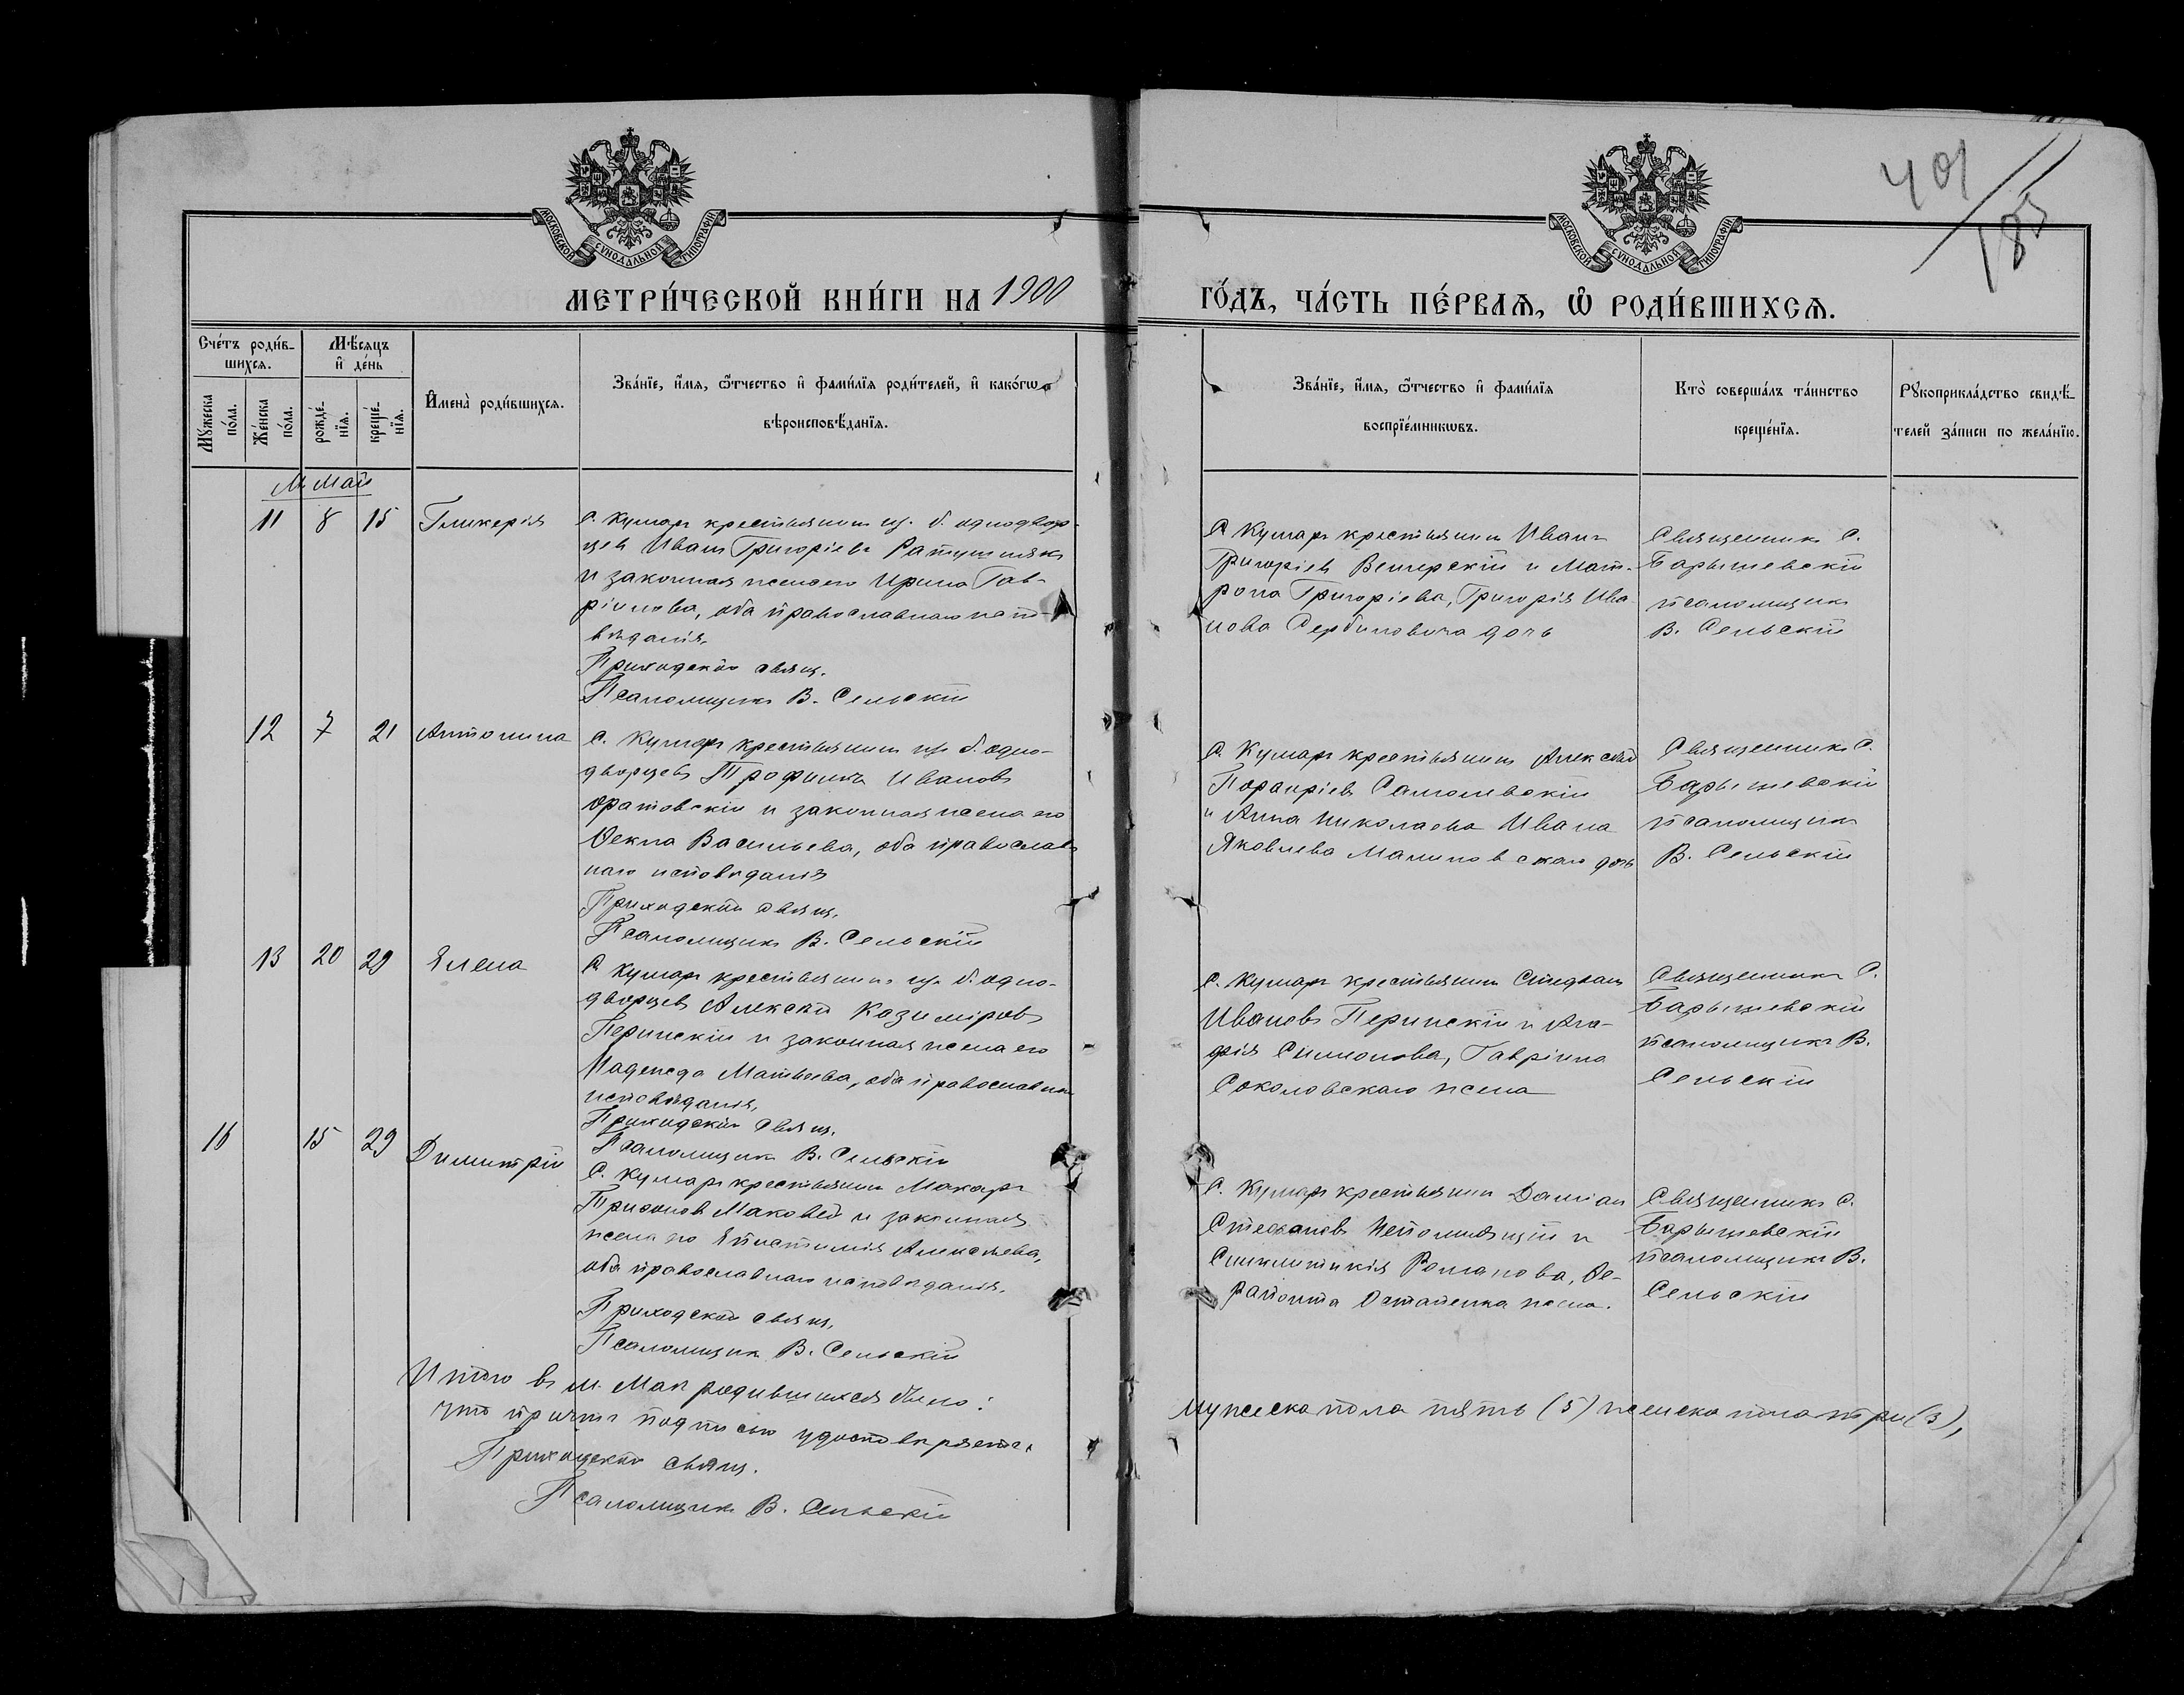 401
185
МОСКОВСКОЙ СѴНОДАЛЬНОЙ ТИПОГРАФІИ
МОСКОВСКОЙ СѴНОДАЛЬНОЙ ТИПОГРАФІИ
МЕТРИ́ЧЕСКОЙ КНИ́ГИ НА 1900
ГО́ДЪ, ЧА́СТЬ ПЕ́РВАѦ, Ѡ҆ РОДИ́ВШИХСѦ.
Сче́тъ роди́в-
шихсѧ.
Мꙋ́жеска по́ла.
Же́нска по́ла.
Мѣ́сѧцъ
и҆ де́нь
рожде́-нїѧ.
креще́-нїѧ.
И҆мена̀ роди́вшихсѧ.
Зва́нїе, и҆́мѧ, ѻ҆́тчество и҆ фами́лїѧ роди́телей, и҆ како́гѡ
вѣроисповѣ́данїѧ.
Зва́нїе, и҆́мѧ, ѻ҆́тчество и҆ фами́лїѧ
воспрїе́мникѡвъ.
Кто̀ соверша́лъ та́инство
креще́нїѧ.
Рꙋкоприкла́дство свидѣ́-
телей за́писи по жела́нїю.
М. Май
11 8 15 Гликерія
С. Кумаръ крестьянинъ изъ б. однодвор-
цевъ Иванъ Григоріевъ Ратушнякъ
и законная жена его Ирина Гав-
ріилова, оба православнаго испо-
вѣданія.
Приходскій священ.
Псаломщикъ В. Сельскій
С. Кумаръ крестьянинъ Иванъ
Григоріевъ Венгерскій и Мат-
рона Григоріева, Григорія Ива-
нова Сербиновича дочь
Священникъ С.
Барышевскій
псаломщикъ
В. Сельскій
12 7 21 Антонина
С. Кумаръ крестьянинъ изъ б. одно-
дворцевъ Трофимъ Ивановъ
Фратовскій и законная жена его
Ѳекла Васильева, оба православ
наго исповѣданія
Приходскій священ.
Псаломщикъ В. Сельскій
С. Кумаръ крестьянинъ Алексѣй
Порфиріевъ Самолевскій
и Анна Николаева Ивана
Яковлева Малиновскаго дочь
Священникъ С.
Барышевскій
псаломщикъ
В. Сельскій
13 20 29 Елена
С. Кумаръ крестьянинъ изъ б. одно-
дворцевъ Алексѣй Казиміровъ
Перинскій и законная жена его
Надежда Матвѣева, оба православнаго
исповѣданія.
Приходскій священ.
Псаломщикъ В. Сельскій
С. Кумаръ крестьянинъ Стефанъ
Ивановъ Перинскій и Ага-
фія Симонова, Гавріила
Соколовскаго жена
Священникъ С.
Барышевскій
псаломщикъ В.
Сельскій
16 15 29 Димитрій
С. Кумаръ крестьянинъ Макаръ
Трифоновъ Маковей и законная
жена его Епистимія Алексѣева,
оба православнаго исповѣданія.
Приходскій священ.
Псаломщикъ В. Сельскій
С. Кумаръ крестьянинъ Даміан
Стефановъ Непомнящій и
Синклитикія Романова, Ѳе-
рапонта Остапенка жена.
Священникъ С.
Барышевскій
псаломщикъ В.
Сельскій
Итого въ м. Маѣ родившихся было:
мужеска пола пять (5) женска пола три (3),
что причтъ подписью удостовѣряетъ:
Приходскій священ.
Псаломщикъ В. Сельскій